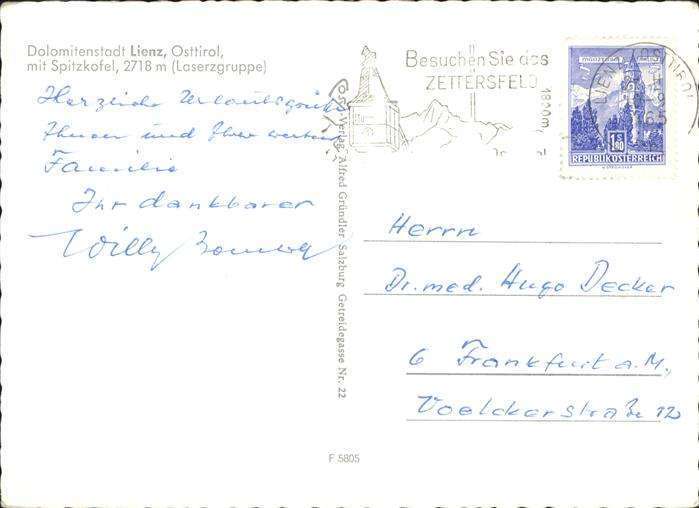 Dolomitenstadt Lienz, Osttirol,
mit Spitzkofel, 2718 m (Laserzgruppe)
Herzliche Urlaubsgrüße
Ihnen und Ihrer werten
Familie
Ihr dankbarer
Willy
Verlag Alfred Gründler Salzburg Getreidegasse Nr. 22
Besuchen Sie das
ZETTERSFELD
1820m,
LIENZ
65
1S80
REPUBLIK ÖSTERREICH
Herrn
Dr. med. Hugo Decker
6 Frankfurt a.M.,
Voelckerstraße 12
F 5805